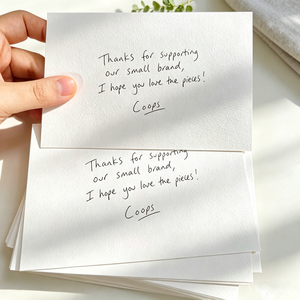 Thanks for supporting
our small brand,
I hope you love the pieces!
Coops
Thanks for supporting
our small brand,
I hope you love the pieces!
Coops